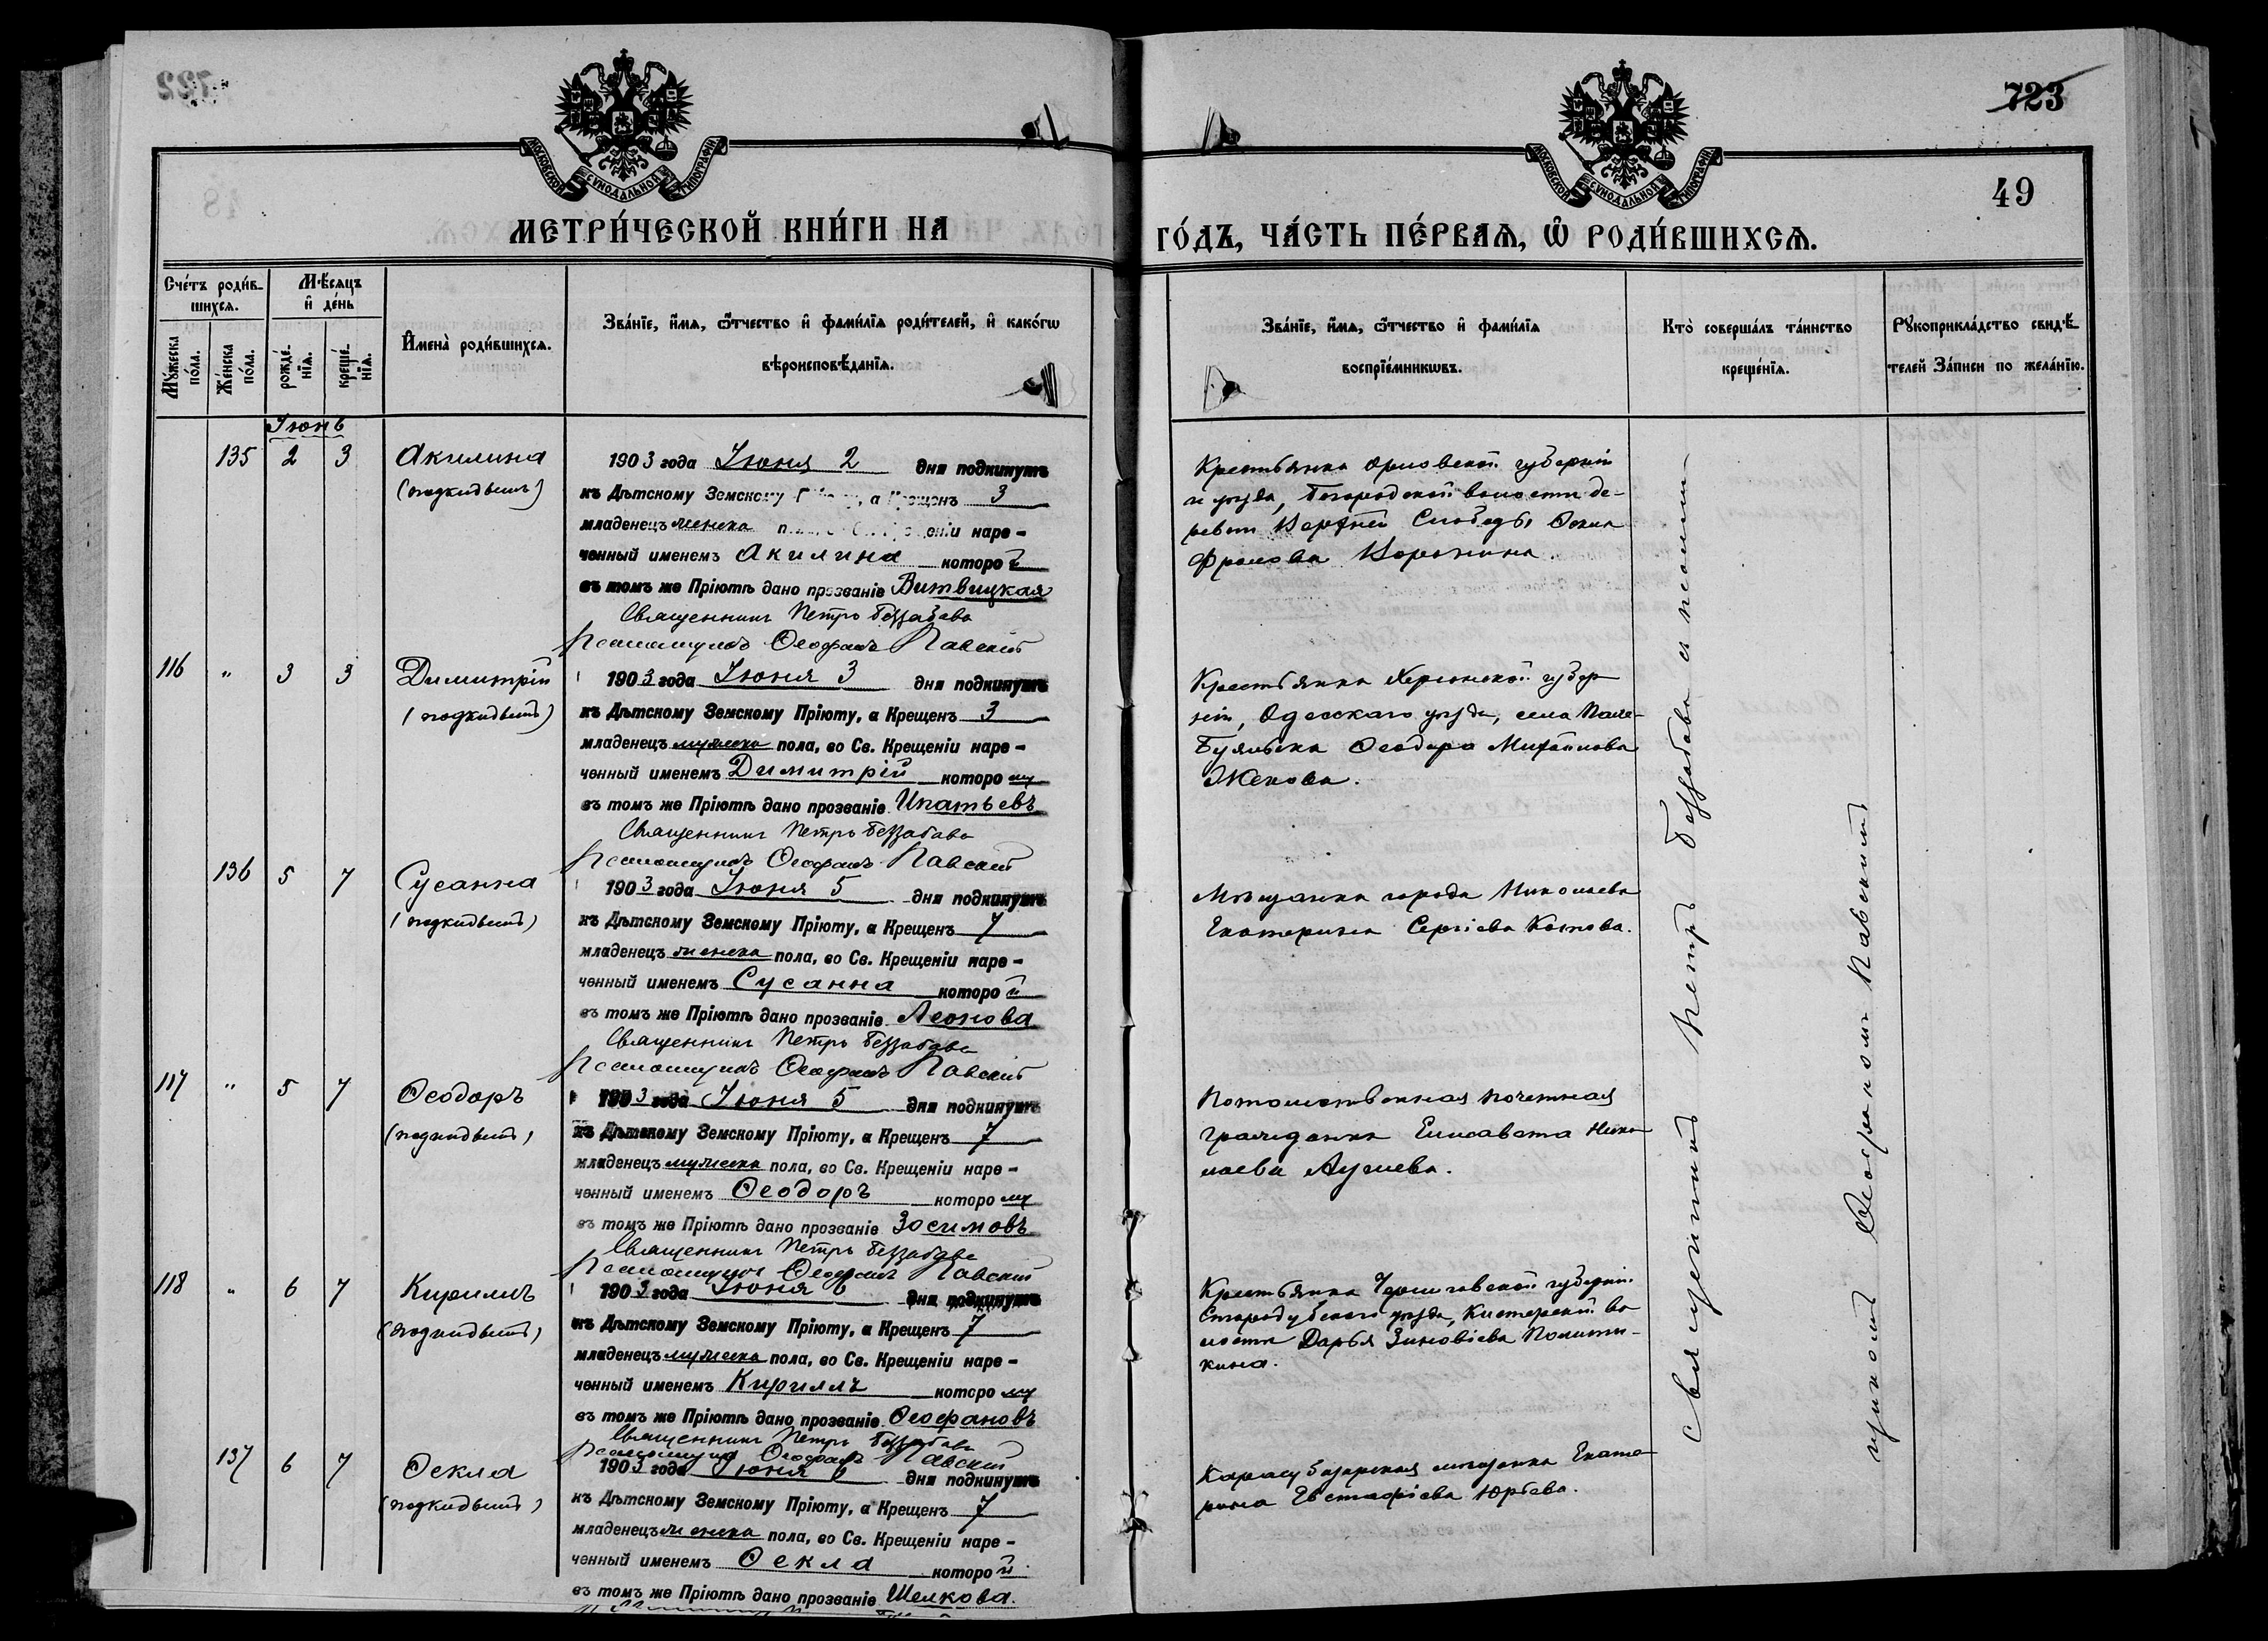 723
49
МОСКОВСКОЙ СУНОДАЛЬНОЙ ТИПОГРАФІИ
МОСКОВСКОЙ СУНОДАЛЬНОЙ ТИПОГРАФІИ
МЕТРИ́ЧЕСКОЙ КНИ́ГИ НА
ГО́ДЪ, ЧА́СТЬ ПЕ́РВАѦ, Ѡ҆ РОДИ́ВШИХСѦ.
Сче́тъ роди́в-
шихсѧ.
Мѣ́сѧцъ
и҆ де́нь
Мꙋ́жеска
по́ла.
Же́нска
по́ла.
рожде́-
нїѧ.
креще́-
нїѧ.
И҆мена̀ роди́вшихсѧ.
Зва́нїе, и҆́мѧ, ѻ҆́тчество и҆ фами́лїѧ роди́телей, и҆ како́гѡ
вѣроисповѣ́данїѧ.
Зва́нїе, и҆́мѧ, ѻ҆́тчество и҆ фами́лїѧ
воспрїе́мникѡвъ.
Кто̀ соверша́лъ та́инство
креще́нїѧ.
Рꙋкоприкла́дство свидѣ́-
телей За́писи по жела́нїю.
Іюнь
135 2 3 Акилина
(подкидышъ)
1903 года Іюня 2 дня подкинутъ
къ Дѣтскому Земскому, а Крещенъ 3
младенецъ женска наре-
ченный именемъ Акилина которой
въ томъ же Пріютѣ дано прозваніе Витвицкая
Священникъ Петръ Беззабава
Псаломщикъ Ѳеофанъ Павскій
Крестьянка Орловской губерніи
и уѣзда, Богородской волости де-
ревни Верхней Слободы
Фролова
116 " 3 3 Димитрій
(подкидышъ)
1903 года Іюня 3 дня подкинутъ
къ Дѣтскому Земскому Пріюту, а Крещенъ 3
младенецъ мужеска пола, во Св. Крещеніи наре-
ченный именемъ Димитрій которому
въ томъ же Пріютѣ дано прозваніе Ипатьевъ
Священникъ Петръ Беззабава
Псаломщикъ Ѳеофанъ Павскій
Крестьянка Херсонской губер
ніи, Одесскаго уѣзда, села
Ѳеодора Михайлова
Жекова.
136 5 7 Сусанна
(подкидышъ)
1903 года Іюня 5 дня подкинутъ
къ Дѣтскому Земскому Пріюту, а Крещенъ 7
младенецъ женска пола, во Св. Крещеніи наре-
ченный именемъ Сусанна которой
въ томъ же Пріютѣ дано прозваніе Леонова
Священникъ Петръ Беззабава
Псаломщикъ Ѳеофанъ Павскій
Мѣщанка города Николаева
Екатерина Сергіева Котова.
117 " 5 7 Ѳеодоръ
(подкидышъ)
1903 года Іюня 5 дня подкинутъ
къ Дѣтскому Земскому Пріюту, а Крещенъ 7
младенецъ мужеска пола, во Св. Крещеніи наре-
ченный именемъ Ѳеодоръ которому
въ томъ же Пріютѣ дано прозваніе Зосимовъ
Священникъ Петръ Беззабава
Псаломщикъ Ѳеофанъ Павскій
Потомственная почетная
гражданка Елисавета Нико
лаева
118 " 6 7 Кириллъ
(подкидышъ)
1903 года Іюня 6 дня подкинутъ
къ Дѣтскому Земскому Пріюту, а Крещенъ 7
младенецъ мужеска пола, во Св. Крещеніи наре-
ченный именемъ Кириллъ которому
въ томъ же Пріютѣ дано прозваніе Ѳеофановъ
Священникъ Петръ Беззабава
Псаломщикъ Ѳеофанъ Павскій
Крестьянка Черниговской губерніи
Стародубскаго уѣзда, Кистерской во
лости Дарья Зиновіева Полити-
кина.
137 6 7 Ѳекла
(подкидышъ)
1903 года Іюня 6 дня подкинутъ
къ Дѣтскому Земскому Пріюту, а Крещенъ 7
младенецъ женска пола, во Св. Крещеніи наре-
ченный именемъ Ѳекла которой
въ томъ же Пріютѣ дано прозваніе Шелкова.
Карасубазарская мѣщанка Екате
рина Евстафіева Юрьева.
Священникъ Петръ Беззабава и псалом-
щикомъ Ѳеофаномъ Павскимъ